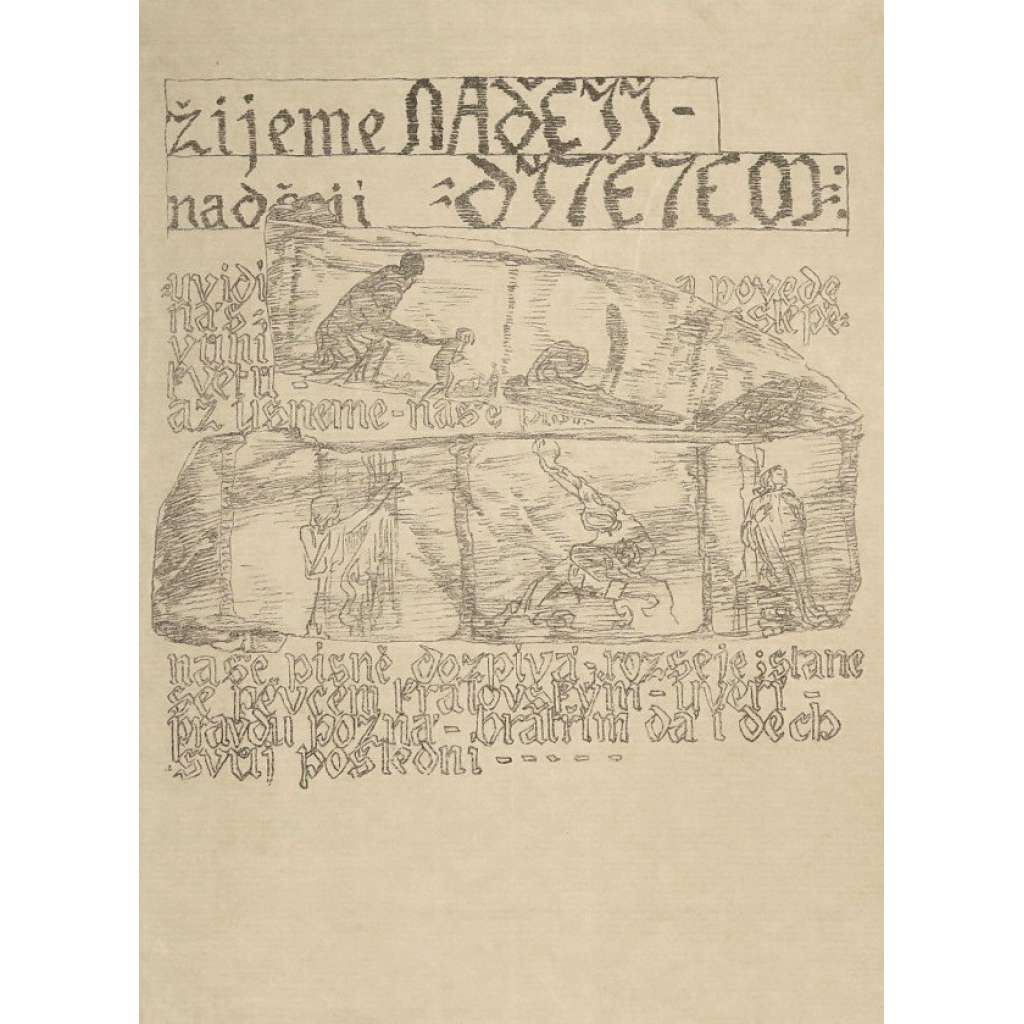 žijeme NADĚJÍ -
nadějí DÍTĚTEM:
uvidí a povede
nás slepé
kvetu
až usneme - naše
naše písně dozpívá, rozseje; stane
se pěvcem královským - uvěří -
pravdu pozná - bratřím dá i dech
svůj poslední - - - - -